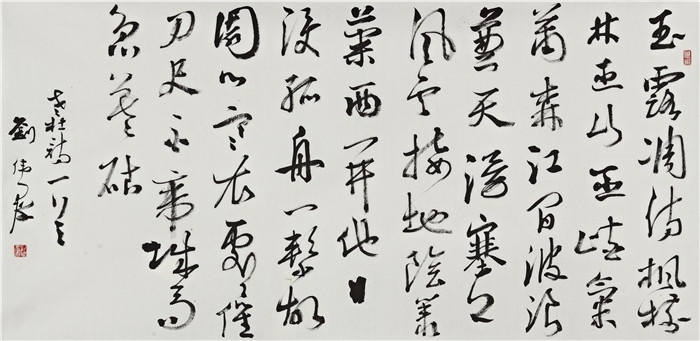 玉露凋傷楓樹
林巫山巫峽氣
蕭森江間波浪
兼天湧塞上
風雲接地陰叢
菊兩開他日
淚孤舟一繫故
園心寒衣處々催
刀尺白帝城高
急暮砧
老杜詩一
劉偉